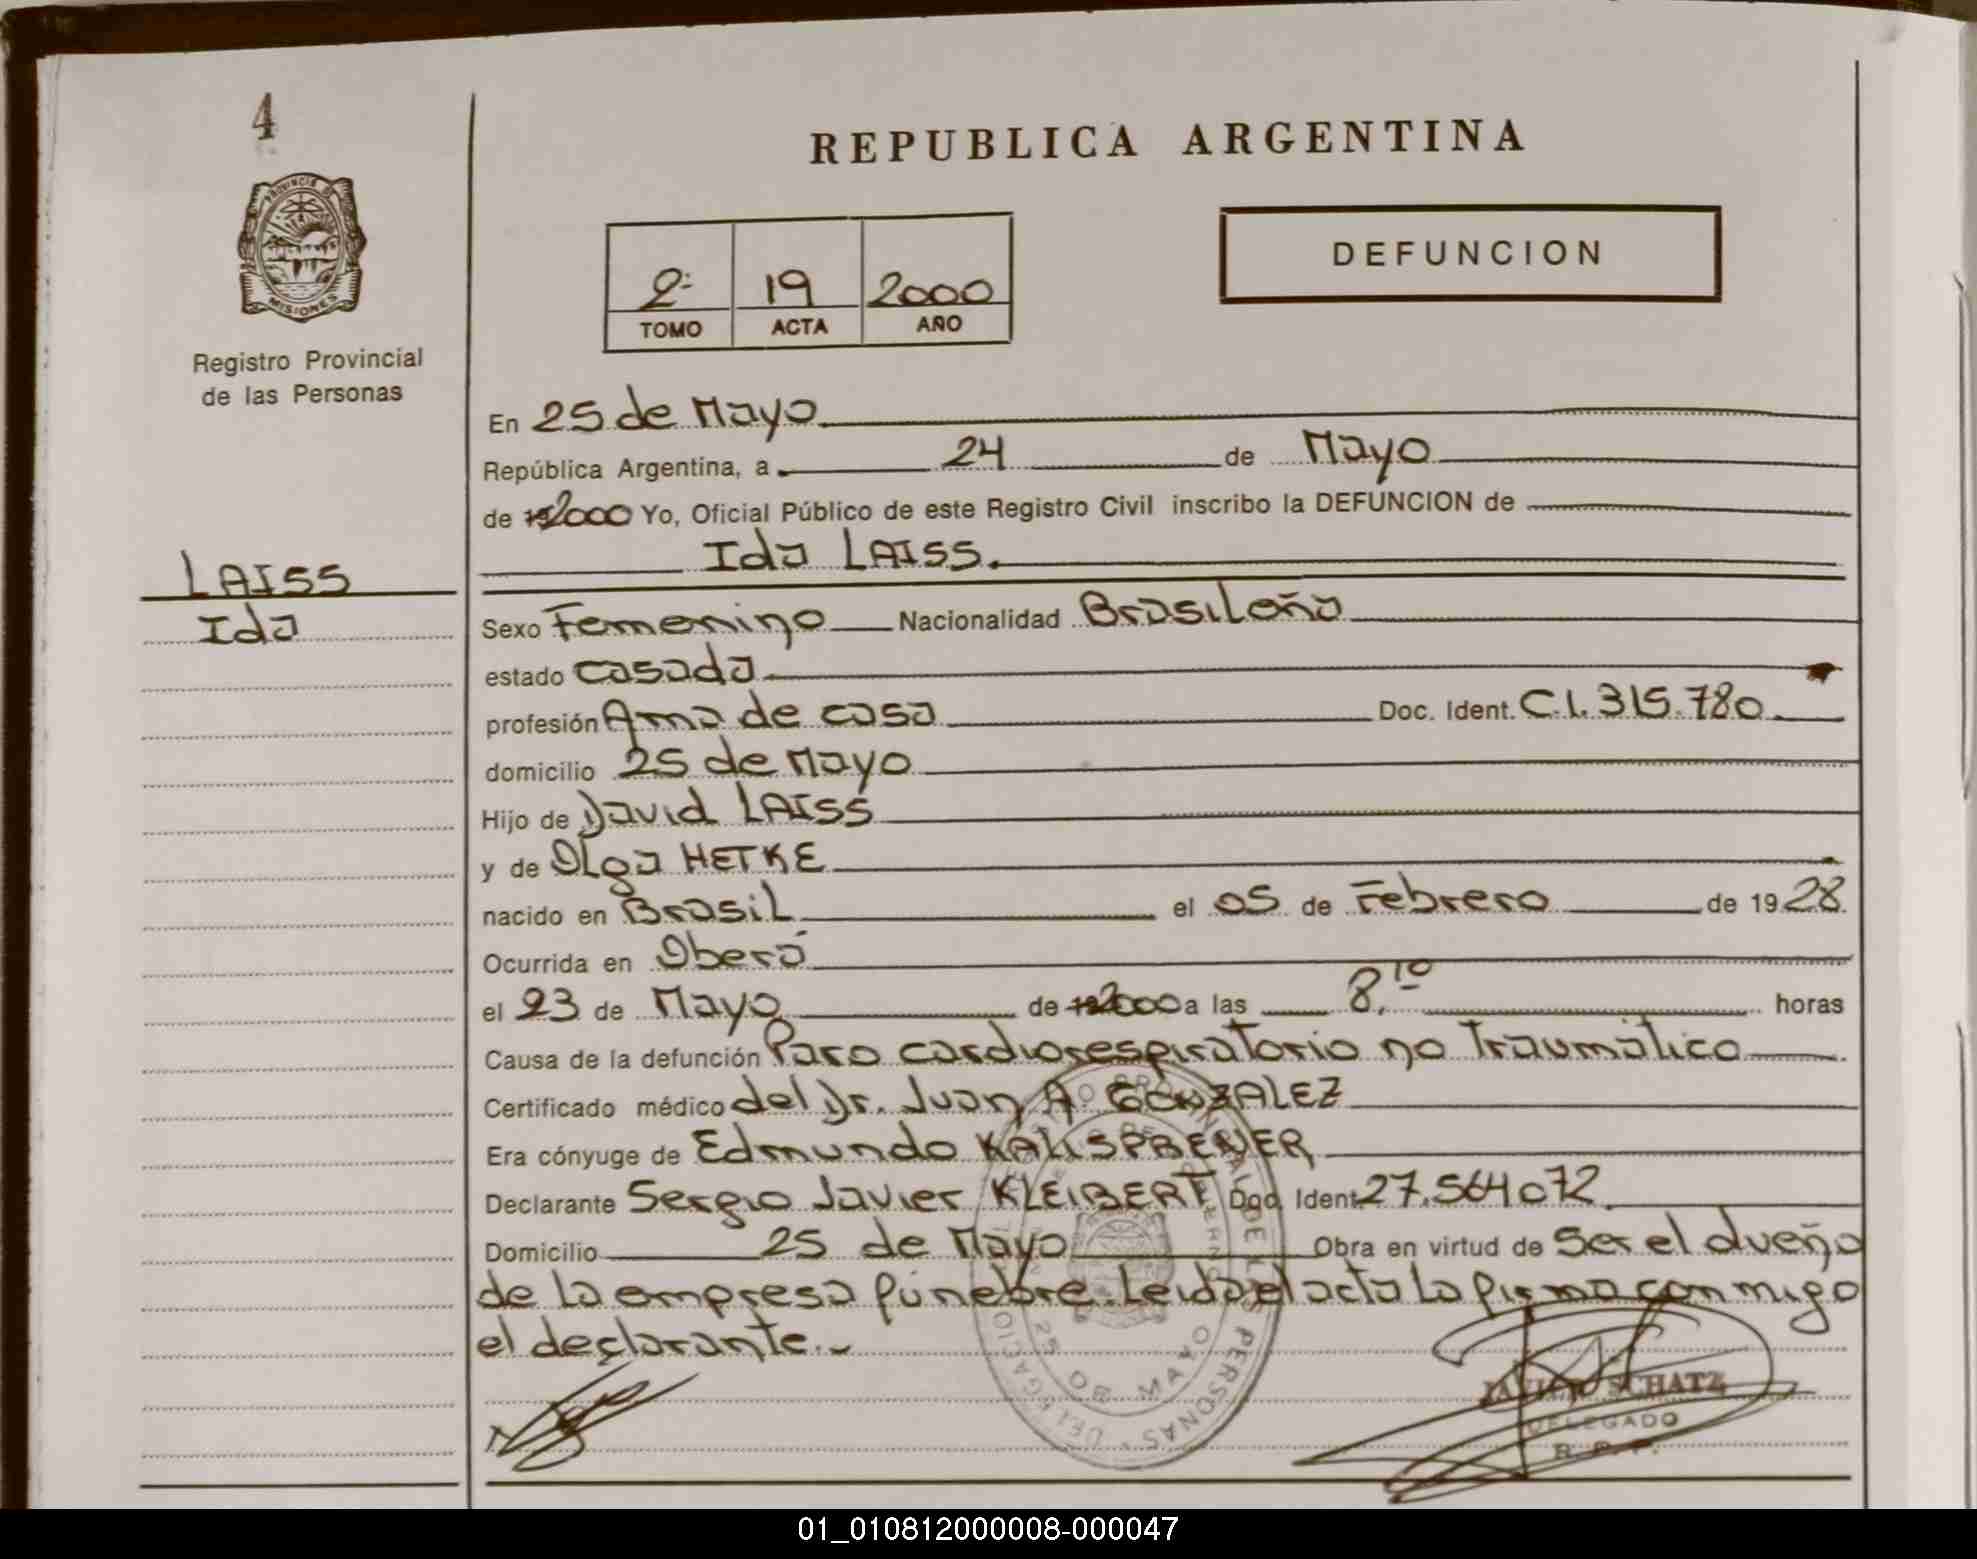 4
PROVINCIA DE
MISIONES
Registro Provincial
de las Personas
LAISS
Ida
REPUBLICA ARGENTINA
DEFUNCION
2º 19 2000
TOMO ACTA AÑO
En 25 de Mayo
República Argentina, a 24 de Mayo
de 192000 Yo, Oficial Público de este Registro Civil inscribo la DEFUNCION de
Ida LAISS.
Sexo Femenino Nacionalidad Brasileña
estado casada
profesión Ama de casa Doc. Ident. C.I. 315.780
domicilio 25 de Mayo
Hijo de David LAISS
y de Olga HETKE
nacido en Brasil el 05 de Febrero de 1928
Ocurrida en Oberá
el 23 de Mayo de 192000 a las 8,10 horas
Causa de la defunción Paro cardiorespiratorio no Traumático
Certificado médico del Dr. Juan A. GONZALEZ
Era cónyuge de Edmundo
Declarante Sergio Javier KLEIBERT Doc. Ident. 27.564.072
Domicilio 25 de Mayo Obra en virtud de Ser el dueño
de la empresa fúnebre. Leida el acta la firma conmigo
el declarante.-
JAVIER SCHATZ
DELEGADO
R. P. P.
25 DE MAYO
01_010812000008-000047